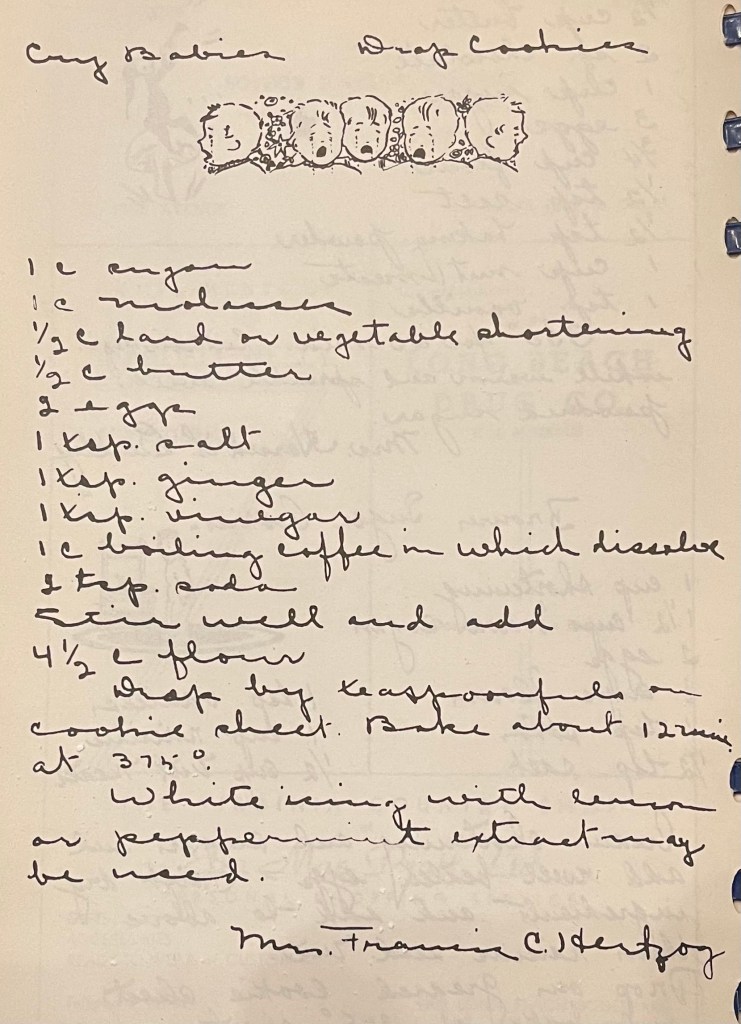 Cry Babies Drop Cookies
1 c sugar
1 c molasses
1/2 c lard or vegetable shortening
1/2 c butter
2 eggs
1 tsp. salt
1 tsp. ginger
1 tsp. vinegar
1 c boiling coffee in which dissolve
2 tsp. soda
Stir well and add
4 1/2 c flour
Drop by teaspoonfuls on
cookie sheet. Bake about 12 min.
at 375°.
White icing with lemon
or peppermint extract may
be used.
Mrs. Francis C. Hertzog